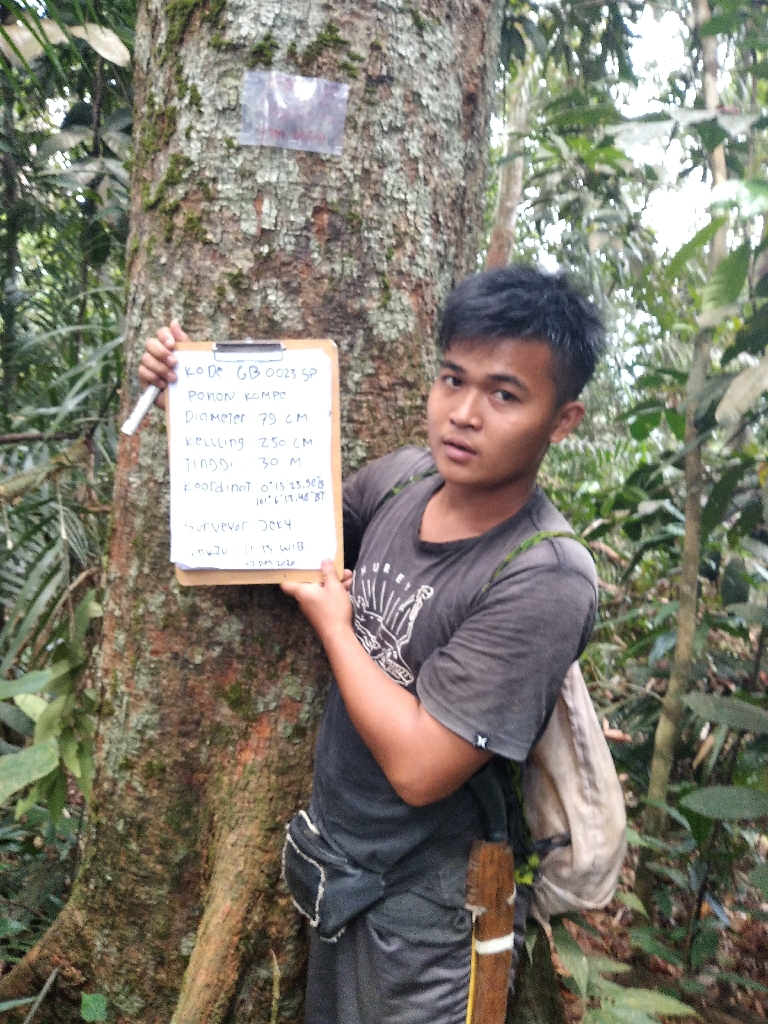 KODE GB 0023 SP
POHON KOMPE
Diameter 79 CM
Keliling 250 CM
TINGGI 30 M
Koordinat 0°15'23.98"
101°6'13.48"BT
Surveyor JEKY
11 13 WIB
17 DES 2020
HURLEY